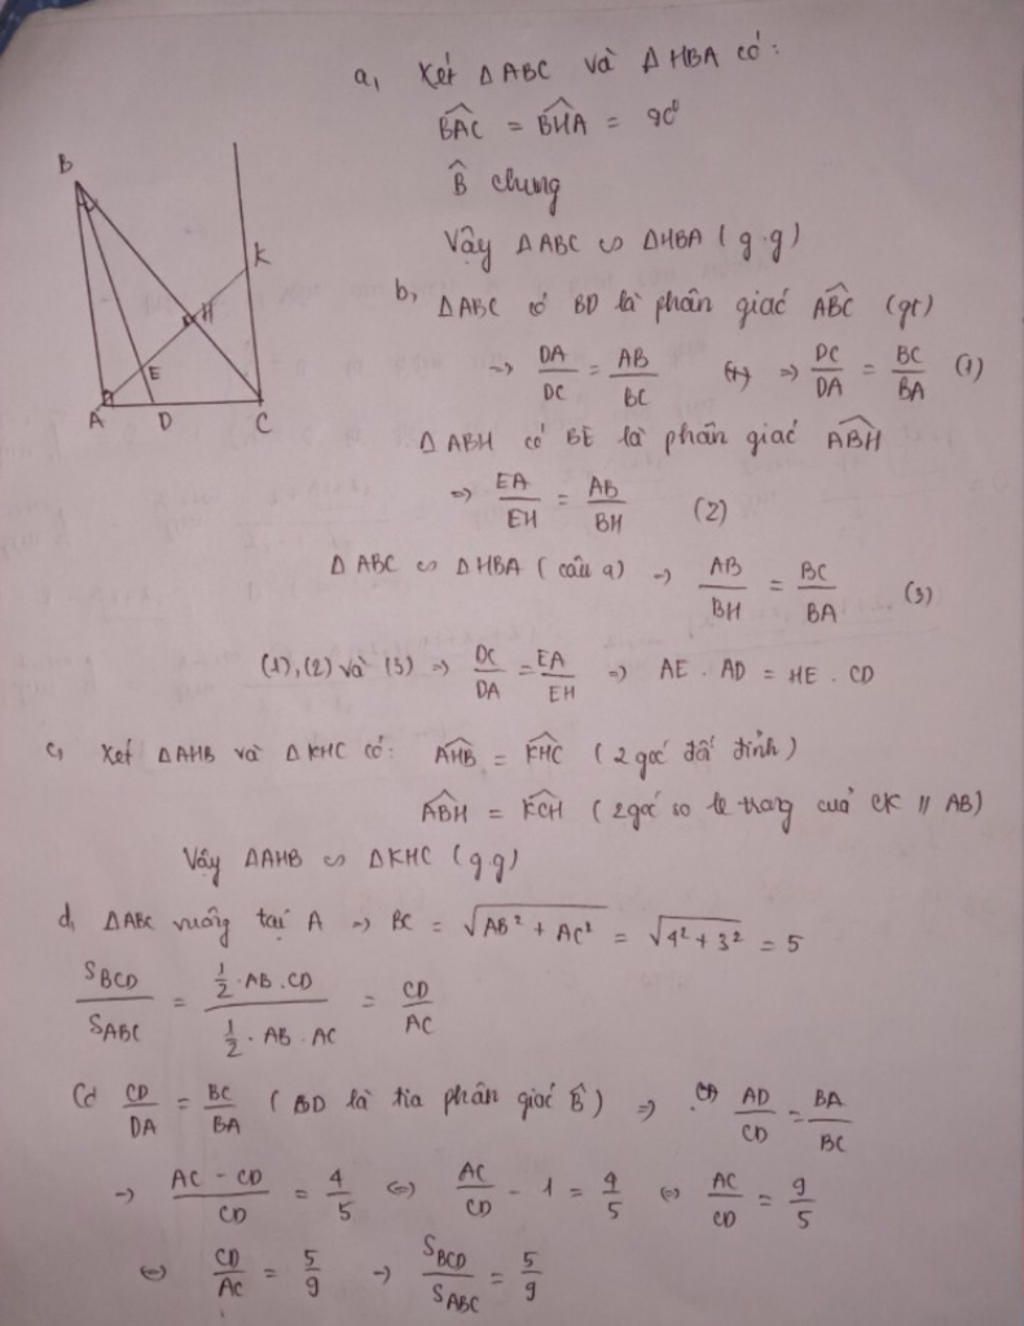 a, Xét ΔABC và ΔHBA có:
\widehat{BAC} = \widehat{BHA} = 90⁰
\widehat{B} chung
Vậy ΔABC ∽ ΔHBA (g.g)
B
K
H
E
A D C
b, ΔABC có BD là phân giác \widehat{ABC} (gt)
=> DA/DC = AB/BC <=> => DC/DA = BC/BA (1)
ΔABH có BE là phân giác \widehat{ABH}
=> EA/EH = AB/BH (2)
ΔABC ∽ ΔHBA (câu a) => AB/BH = BC/BA (3)
(1), (2) và (3) => DC/DA = EA/EH => AE . AD = HE . CD
c, Xét ΔAHB và ΔKHC có: \widehat{AHB} = \widehat{KHC} (2 góc đối đỉnh)
\widehat{ABH} = \widehat{KCH} (2 góc so le trong của CK // AB)
Vậy ΔAHB ∽ ΔKHC (g.g)
d, ΔABC vuông tại A => BC = √(AB² + AC²) = √(4² + 3²) = 5
S_{BCD}/S_{ABC} = (1/2 . AB . CD)/(1/2 . AB . AC) = CD/AC
Có CD/DA = BC/BA (BD là tia phân giác \widehat{B}) => AD/CD = BA/BC
=> (AC - CD)/CD = 4/5 <=> AC/CD - 1 = 4/5 <=> AC/CD = 9/5
<=> CD/AC = 5/9 => S_{BCD}/S_{ABC} = 5/9